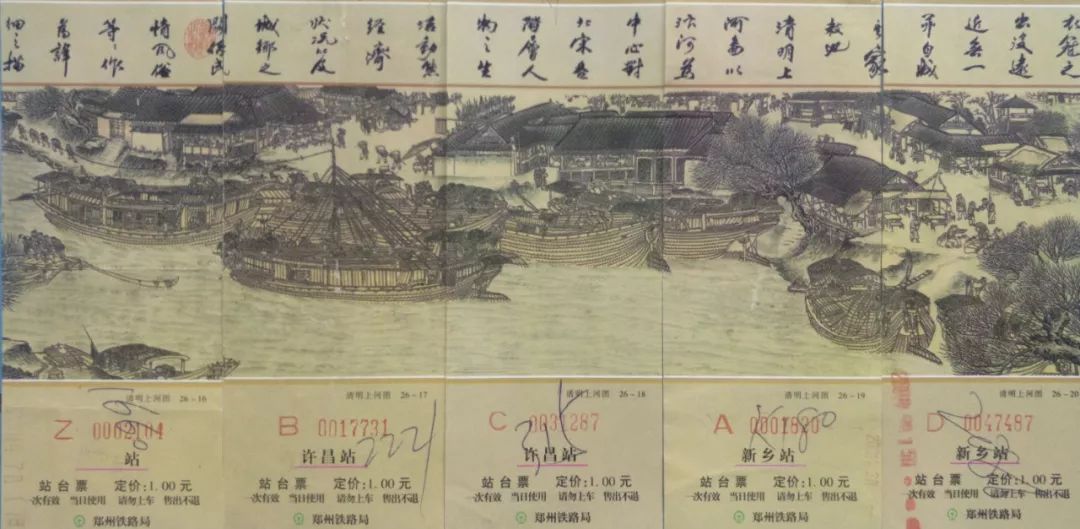 出没遠
近无一
清明上
河圖以
汴河為
中心對
北宋各
階層人
物之生
活動態
經濟
狀況以及
城鄉之
關係民
情風俗
等等作
細之描
清明上河图 26-16
Z 0062104
站
站台票 定价:1.00元
一次有效 当日使用 请勿上车 售出不退
郑州铁路局
清明上河图 26-17
B 0017731
许昌站
2221
站台票 定价:1.00元
一次有效 当日使用 请勿上车 售出不退
郑州铁路局
清明上河图 26-18
C 0031287
许昌站
站台票 定价:1.00元
一次有效 当日使用 请勿上车 售出不退
郑州铁路局
清明上河图 26-19
A 0001820
K180
新乡站
站台票 定价:1.00元
一次有效 当日使用 请勿上车 售出不退
郑州铁路局
清明上河图 26-20
D 0047487
新乡站
站台票 定价:1.00元
一次有效 当日使用 请勿上车 售出不退
郑州铁路局